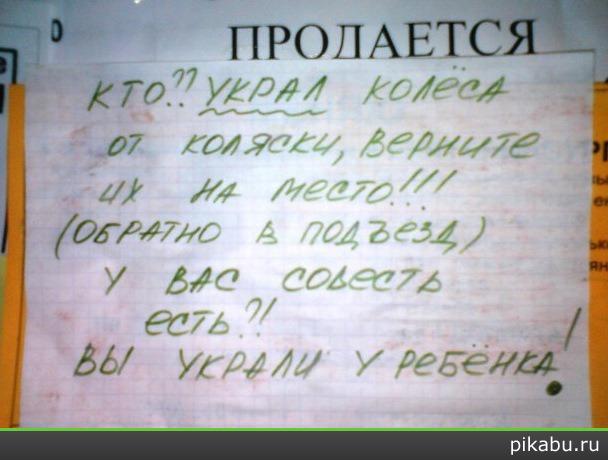 ПРОДАЕТСЯ
КТО?? УКРАЛ КОЛЁСА
ОТ КОЛЯСКИ, ВЕРНИТЕ
ИХ НА МЕСТО!!!
(ОБРАТНО В ПОДЪЕЗД)
У ВАС СОВЕСТЬ
ЕСТЬ?!
ВЫ УКРАЛИ У РЕБЁНКА!
pikabu.ru